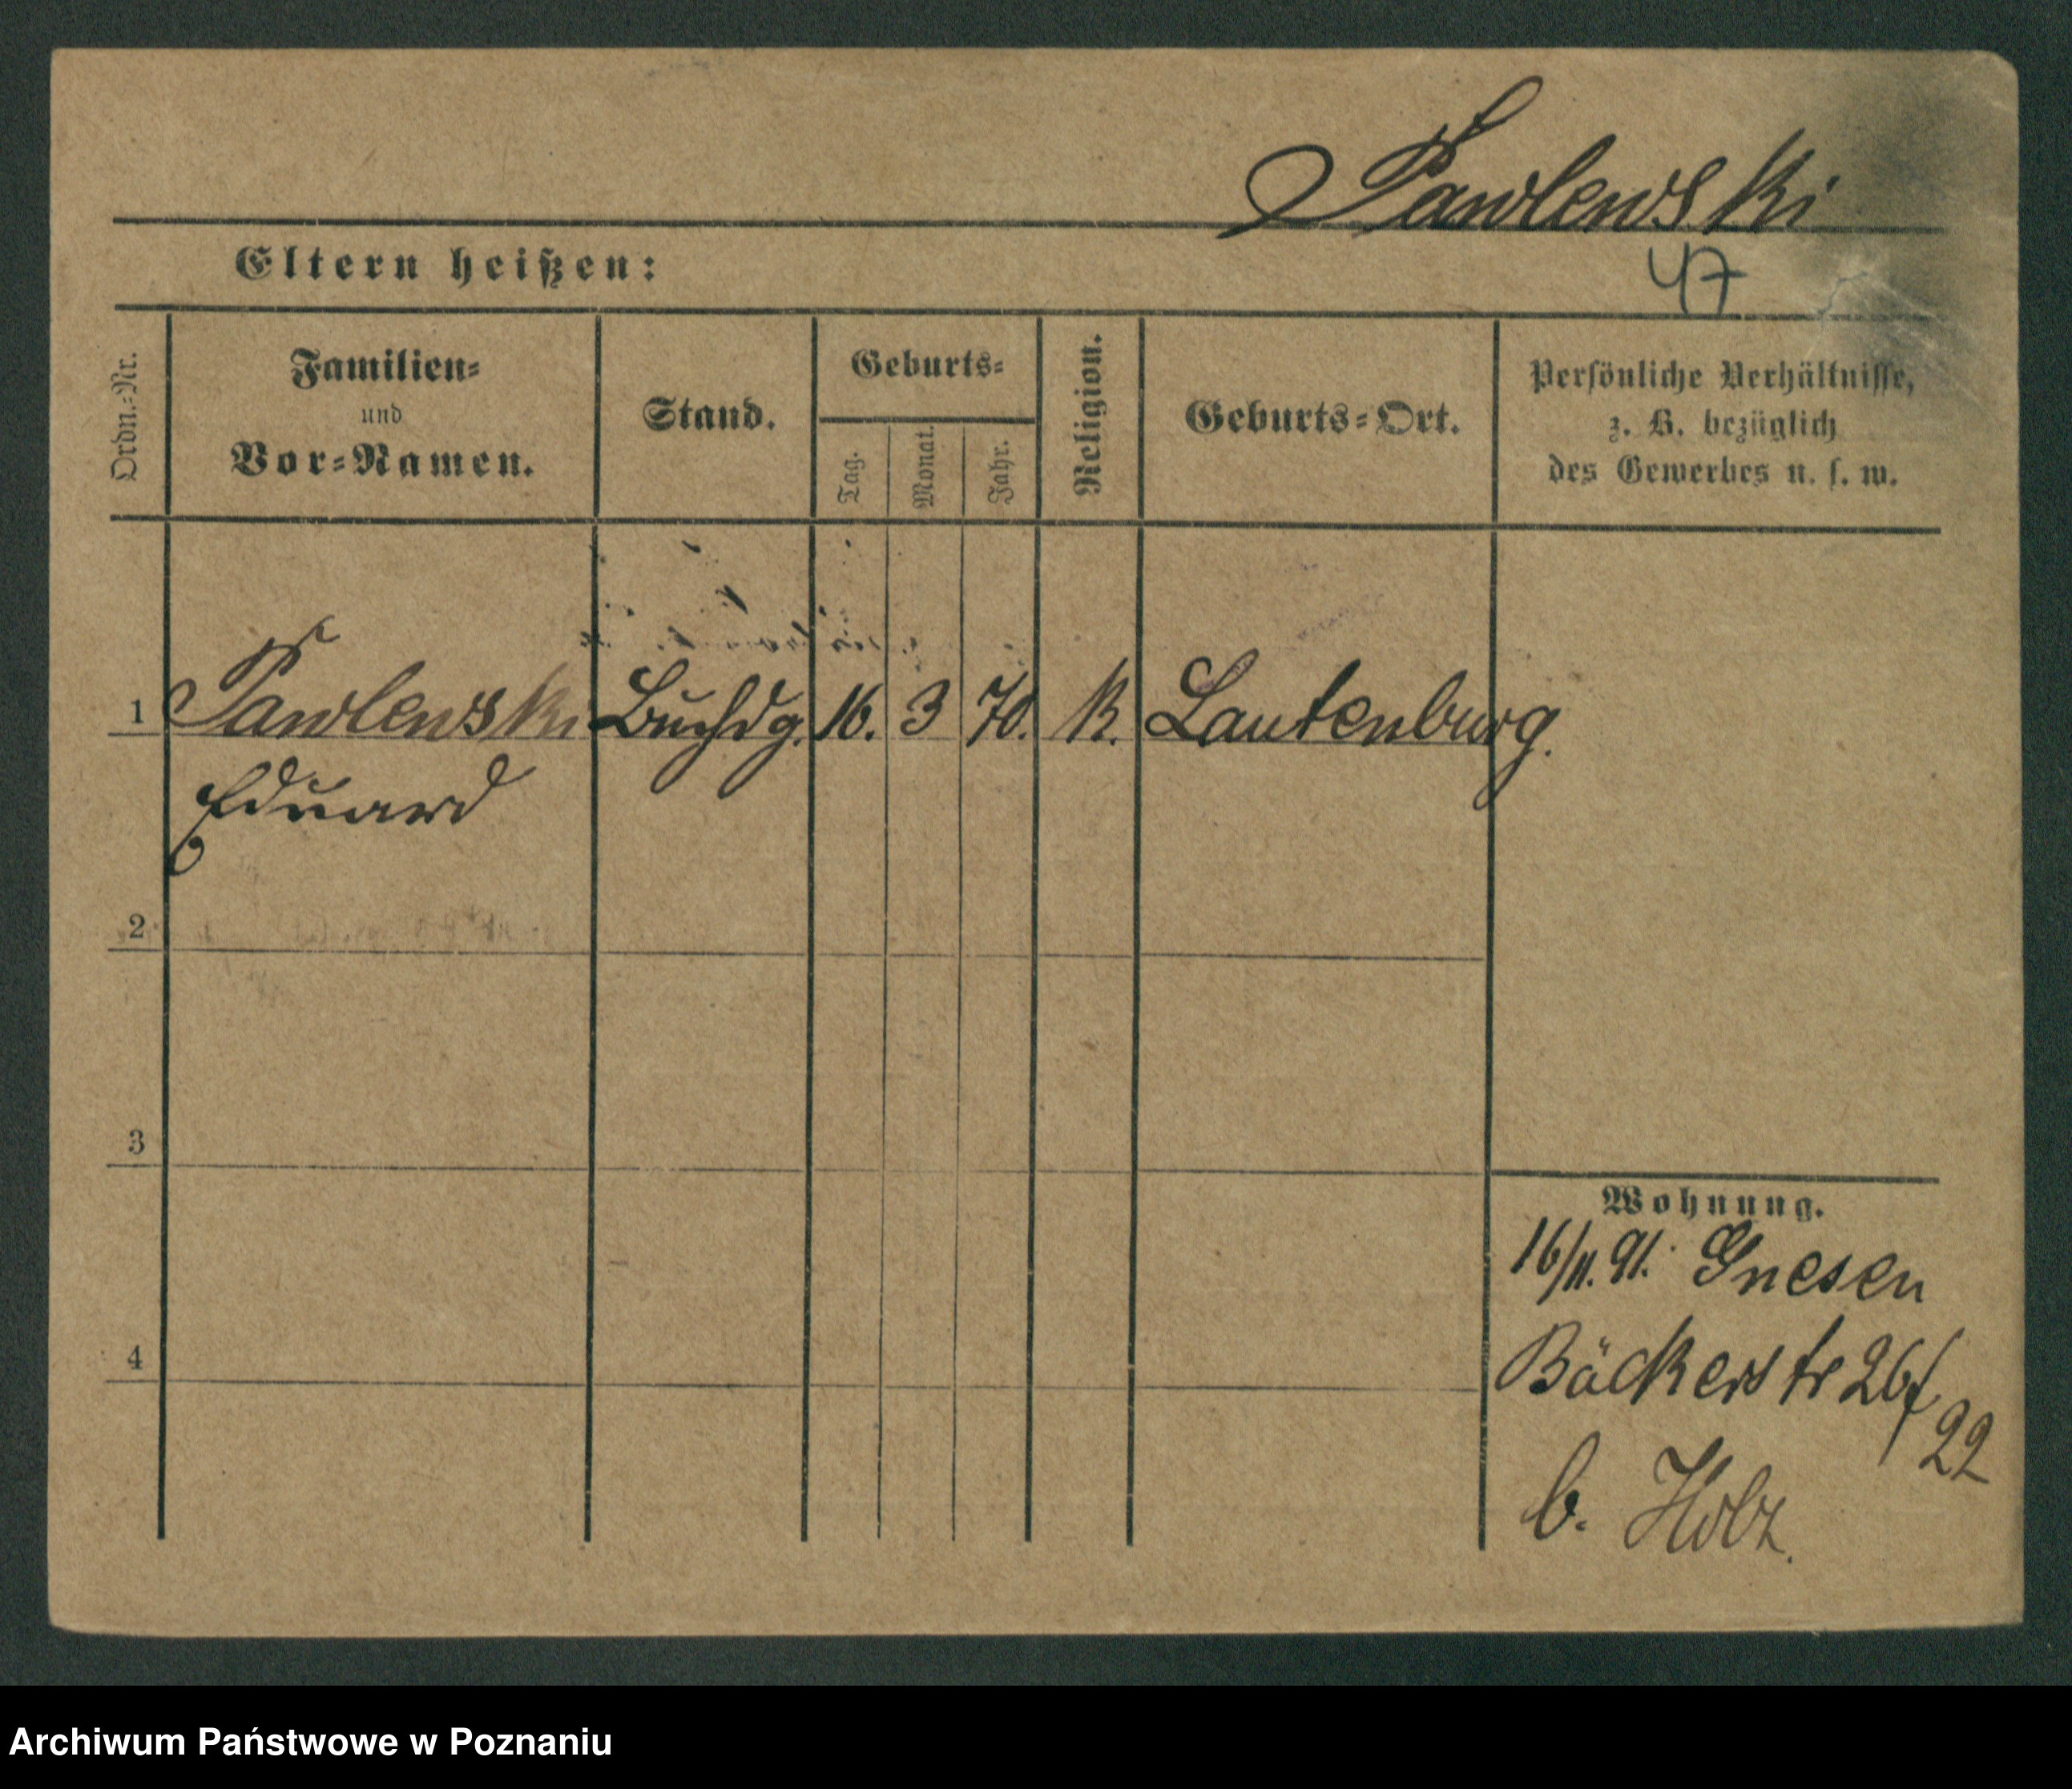 Pawlewski
Eltern heißen:
47
Ordn.-Nr.
Familien-
und
Vor-Namen.
Stand.
Geburts-
Tag.
Monat.
Jahr.
Religion.
Geburts-Ort.
Persönliche Verhältnisse,
z. B. bezüglich
des Gewerbes u. s. w.
1 Pawlewski Buchdg. 16. 3 70. K. Lautenburg.
Eduard
2
3
4
Wohnung.
16/11. 91. Gnesen
Bäckerstr 26/
22
b. Holz.
Archiwum Państwowe w Poznaniu